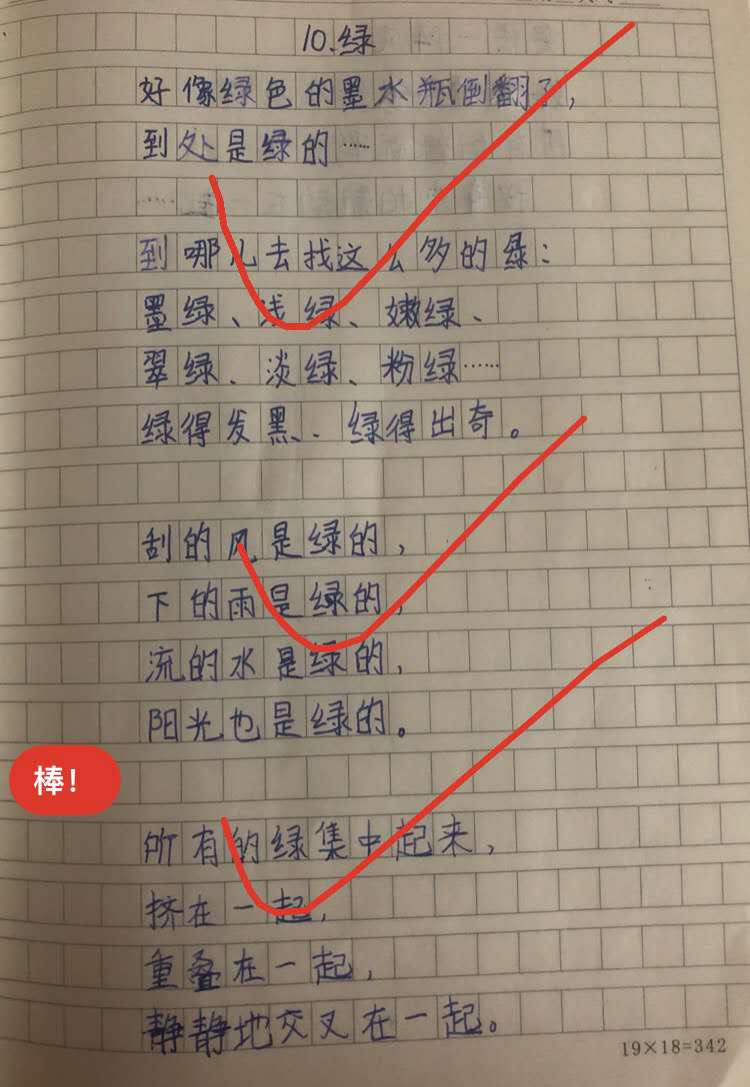 10.绿
好像绿色的墨水瓶倒翻了,
到处是绿的……
到哪儿去找这么多的绿:
墨绿、浅绿、嫩绿、
翠绿、淡绿、粉绿……
绿得发黑、绿得出奇。
刮的风是绿的,
下的雨是绿的,
流的水是绿的,
阳光也是绿的。
棒!
所有的绿集中起来,
挤在一起,
重叠在一起,
静静地交叉在一起。
19×18=342